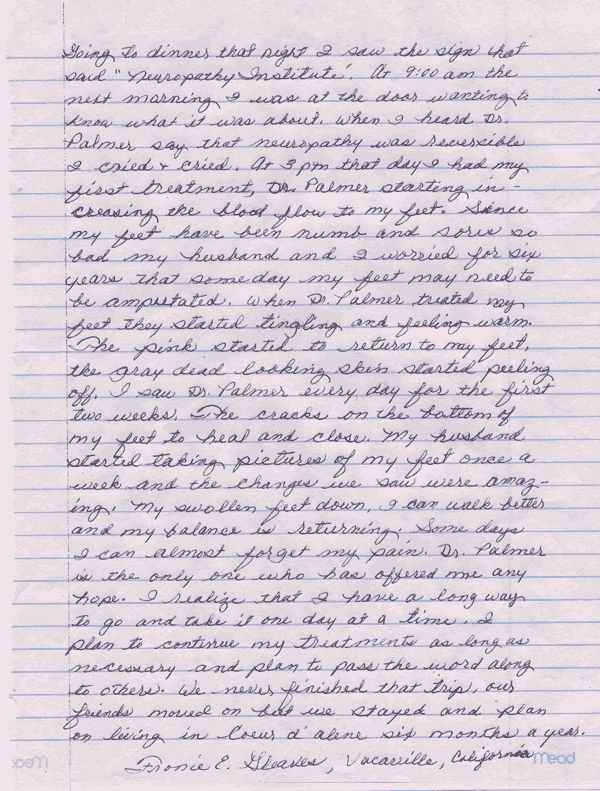 Going to dinner that night I saw the sign that
said "Neuropathy Institute". At 9:00 am the
next morning I was at the door wanting to
know what it was about. When I heard Dr.
Palmer say that neuropathy was reversible
I cried & cried. At 3 pm that day I had my
first treatment, Dr. Palmer starting in-
creasing the blood flow to my feet. Since
my feet have been numb and soris so
bad my husband and I worried for six
years that someday my feet may need to
be amputated. When Dr. Palmer treated my
feet they started tingling and feeling warm.
The pink started to return to my feet,
the gray dead looking skin started peeling
off. I saw Dr. Palmer every day for the first
two weeks. The cracks on the bottom of
my feet to heal and close. My husband
started taking pictures of my feet once a
week and the changes we saw were amaz-
ing. My swollen feet down, I can walk better
and my balance is returning. Some days
I can almost forget my pain. Dr. Palmer
is the only one who has offered me any
hope. I realize that I have a long way
to go and take it one day at a time. I
plan to continue my treatments as long as
necessary and plan to pass the word along
to others. We never finished that trip, our
friends moved on but we stayed and plan
on living in Coeur d'alene six months a year.
Fronie E. Gleaves, Vacaville, California
Mead